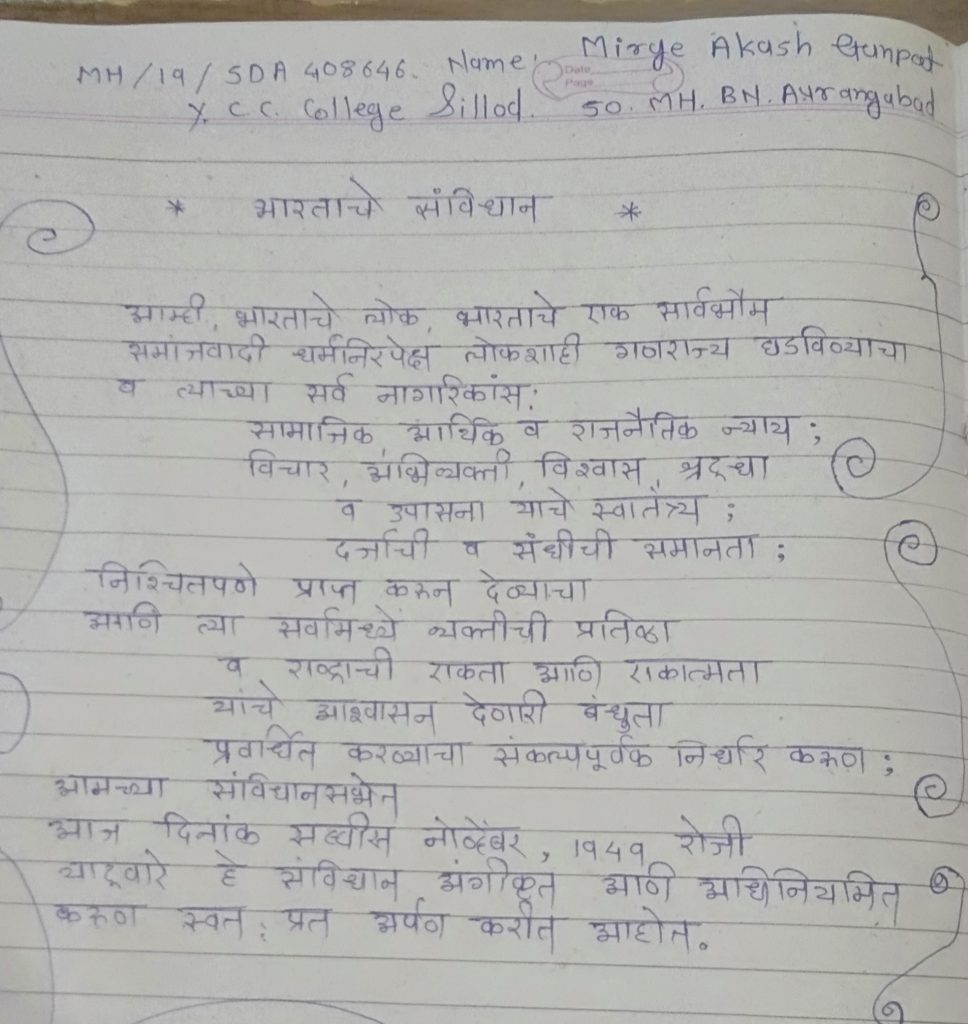 MH/19/SDA 408646. Name: Mirge Akash Gunpat
Date
Page
Y. C. C. College Sillod. 50. MH. BN. Aurangabad
* भारताचे संविधान *
आम्ही, भारताचे लोक, भारताचे एक सार्वभौम
समाजवादी धर्मनिरपेक्ष लोकशाही गणराज्य घडविण्याचा
व त्याच्या सर्व नागरिकांस:
सामाजिक, आर्थिक व राजनैतिक न्याय ;
विचार, अभिव्यक्ती, विश्वास, श्रद्धा
व उपासना याचे स्वातंत्र्य ;
दर्जाची व संधीची समानता ;
निश्चितपणे प्राप्त करुन देण्याचा
आणि त्या सर्वामध्ये व्यक्तीची प्रतिष्ठा
व राष्ट्राची एकता आणि एकात्मता
यांचे आश्वासन देणारी बंधुता
प्रवर्धित करण्याचा संकल्पपूर्वक निर्धार करुण ;
आमच्या संविधानसभेत
आज दिनांक सव्वीस नोव्हेंबर, 1949 रोजी
याद्वारे हे संविधान अंगीकृत आणि अधिनियमित
करुण स्वत: प्रत अर्पण करीत आहोत.